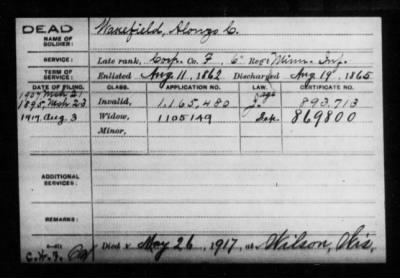 DEAD
NAME OF SOLDIER: Wakefield, Alonzo C.
SERVICE: Late rank, Corp. Co. F, 6" Reg't Minn. Inf.
TERM OF SERVICE: Enlisted Aug. 11, 1862 Discharged Aug. 19", 1865
DATE OF FILING. CLASS. APPLICATION NO. LAW. CERTIFICATE NO.
1907 Mch 21
1895, Mch 23 Invalid, 1,165,480 893,713
1917, Aug 3 Widow, 1105149 869800
Minor,
ADDITIONAL SERVICES:
REMARKS:
Died May 26, 1917, at Wilson, Wis,